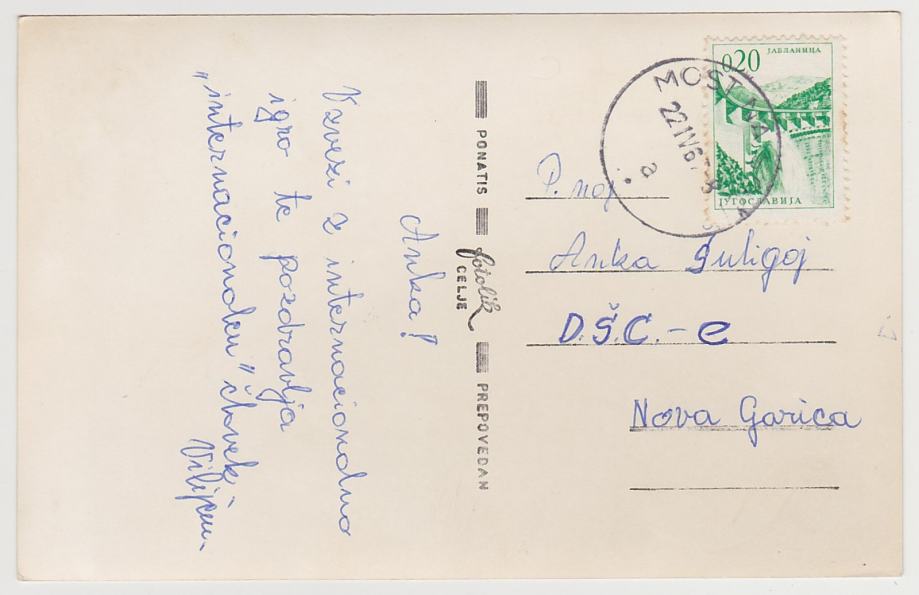 Anka!
V zvezi z internacionalno
igro te pozdravlja
"internacionalen" človek
Vilijem.
PONATIS
fotolik
CELJE
PREPOVEDAN
0,20
ЈАБЛАНИЦА
ЈУГОСЛАВИЈА
MOST NA
22 IV 67-8
a
P. noj
Anka Šuligoj
D.Š.C. - e
Nova Gorica